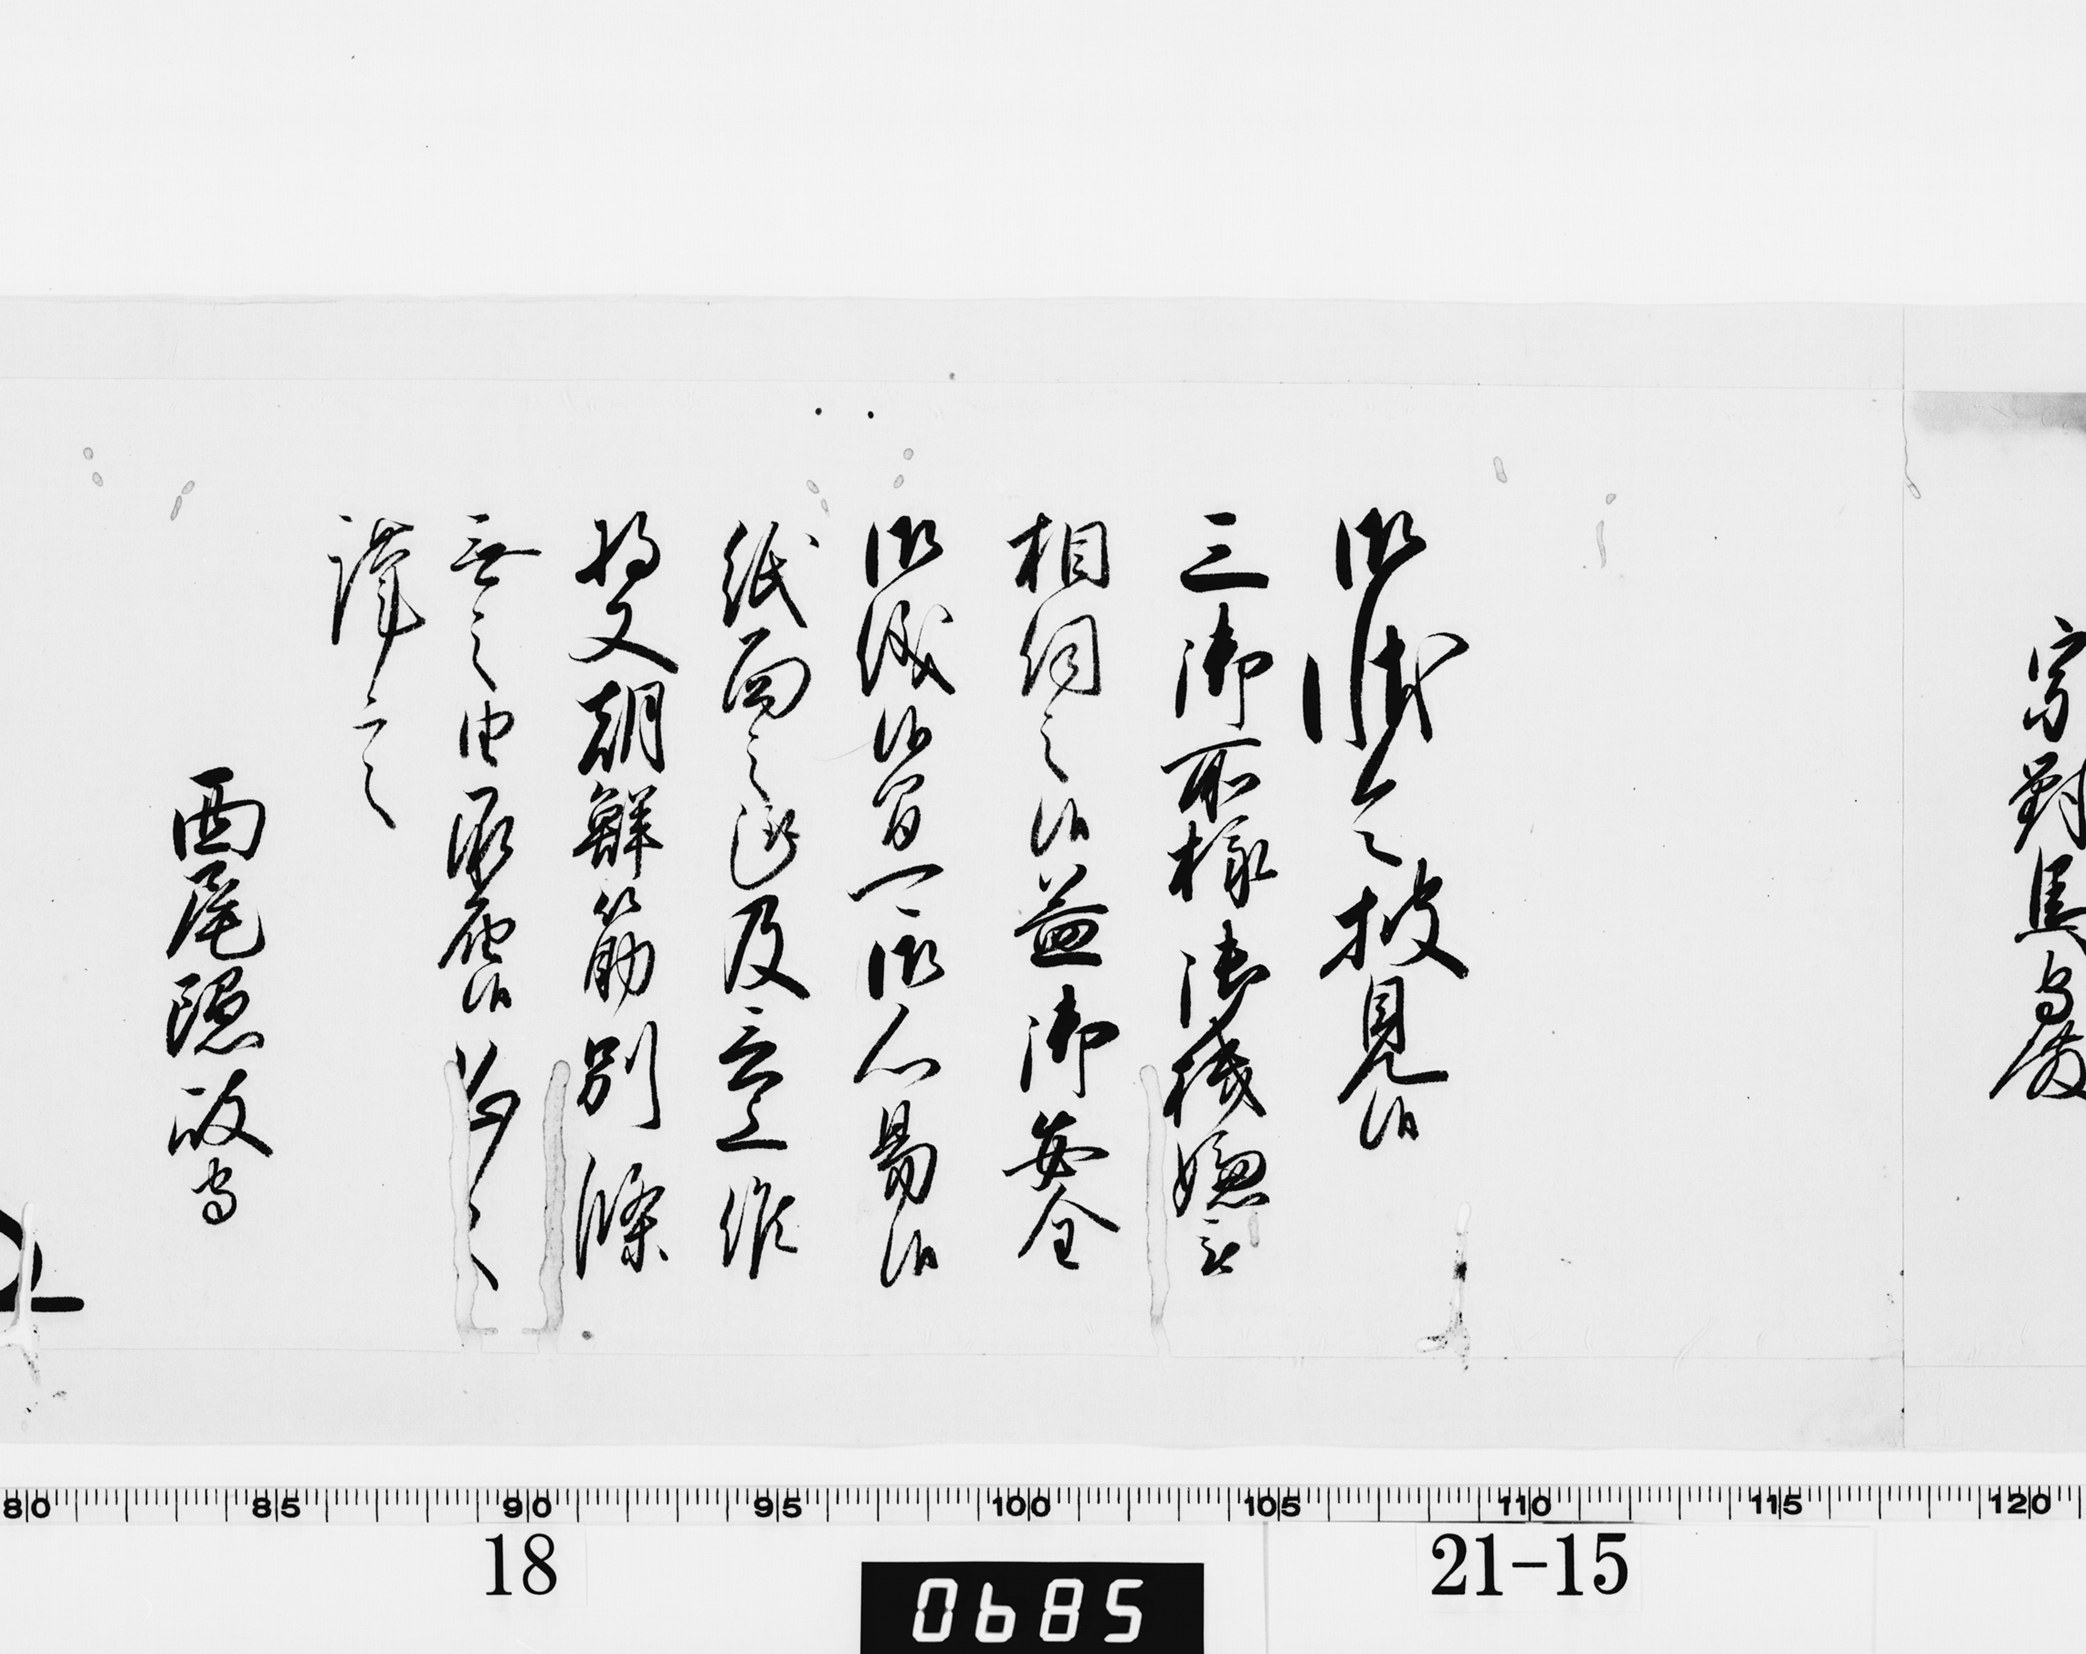 宗對馬守殿
御状令披見候
三御所様御機嫌之
相伺之候益御安全
御儀候間可御心易候
紙面之趣及言上候
将又朝鮮筋別條
無之由承届候恐々
謹言
西尾隠岐守
80 85 90 95 100 105 110 115 120
18
0685
21-15